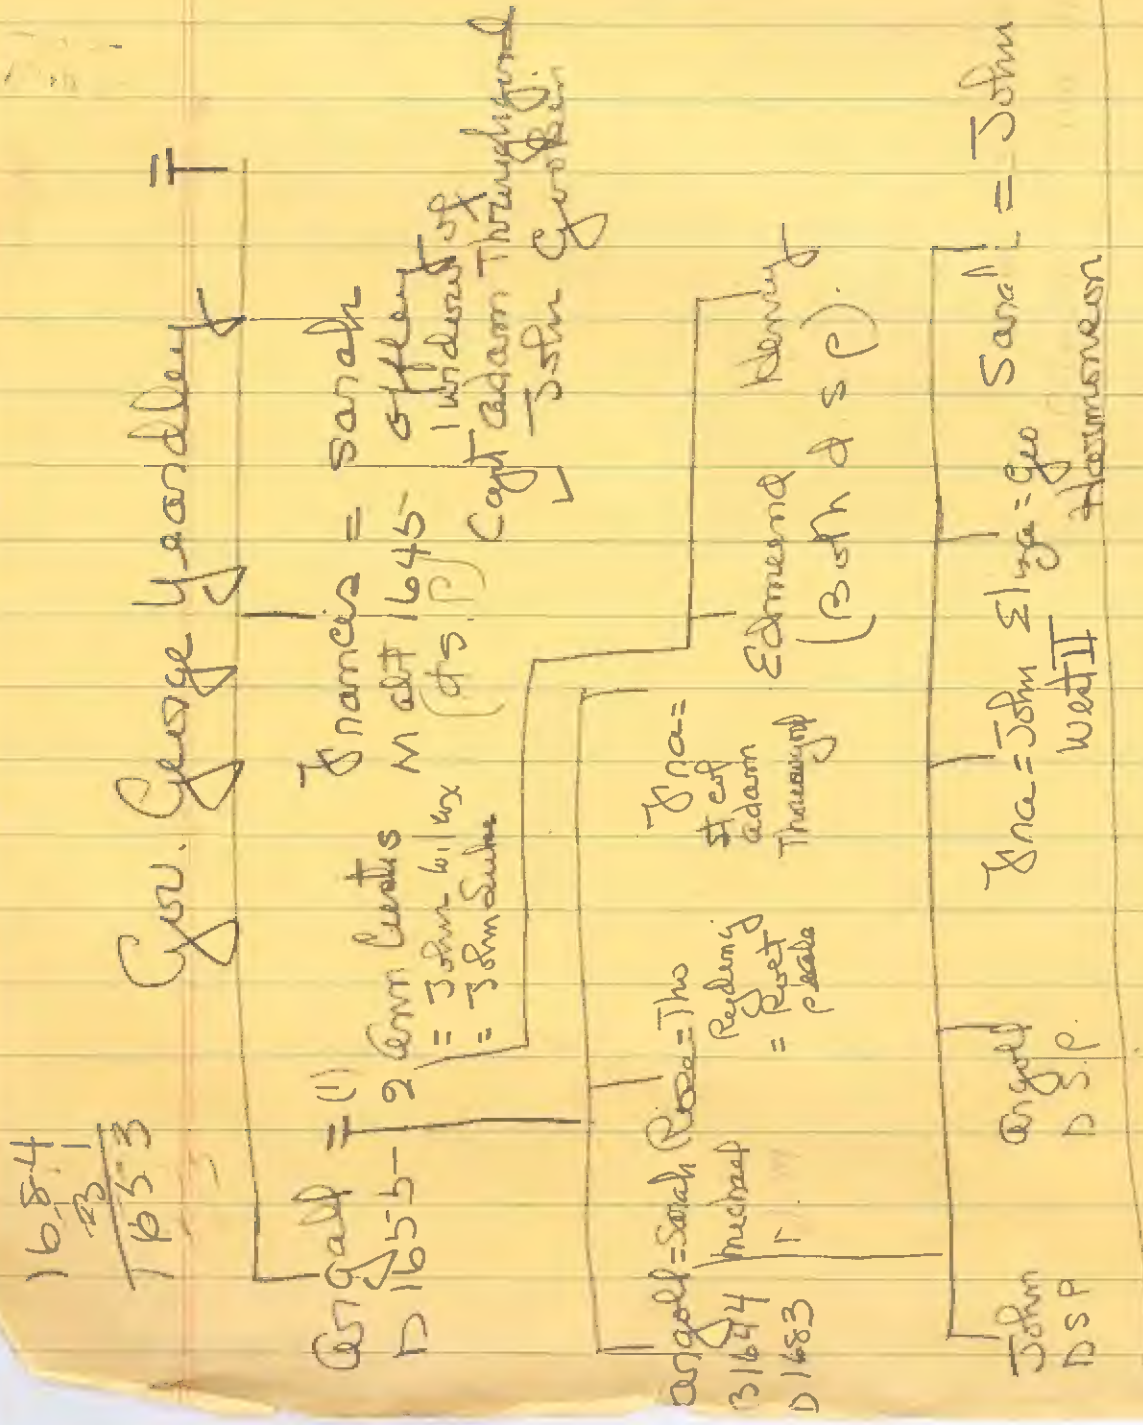 1684
31
1653
Gov. George Yeardley I
Argall = (1)
D 1655-
2 Ann Custis
= John Wilkx
= John
Frances = Sarah
M abt 1645- Offley
(d s. p) widow of
Capt Adam Thoroughgood
John Gookin
Argoll = Sarah
Michael
B 1644
D 1683
Rose = Tho
Reyding
= Robt
Peale
Fra =
st of
Adam
Thorowgood
Edmund Henry
(Both d s p).
John
D S P
Argoll
D S. P.
Fra = John
West II
Eliza = Geo
Harmonson
Sarah = John